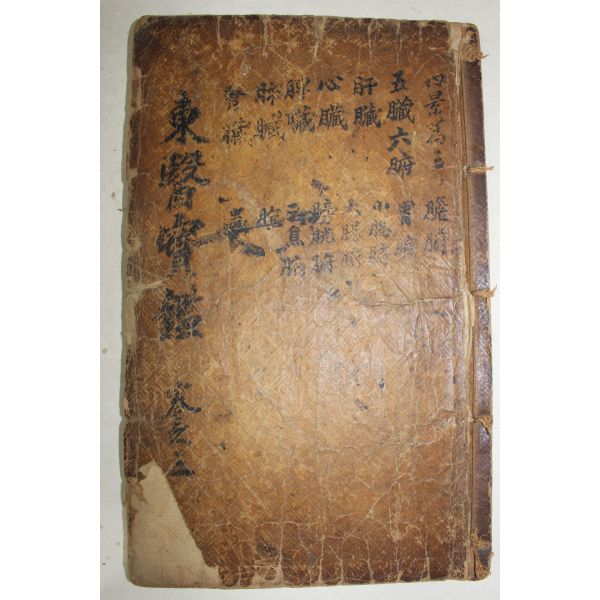 東醫寶鑑 卷之三
內景篇三
五臟六腑
肝臟
心臟
脾臟
肺臟
腎臟
膽腑
胃腑
小腸腑
大腸腑
膀胱腑
三焦腑
胞
蟲